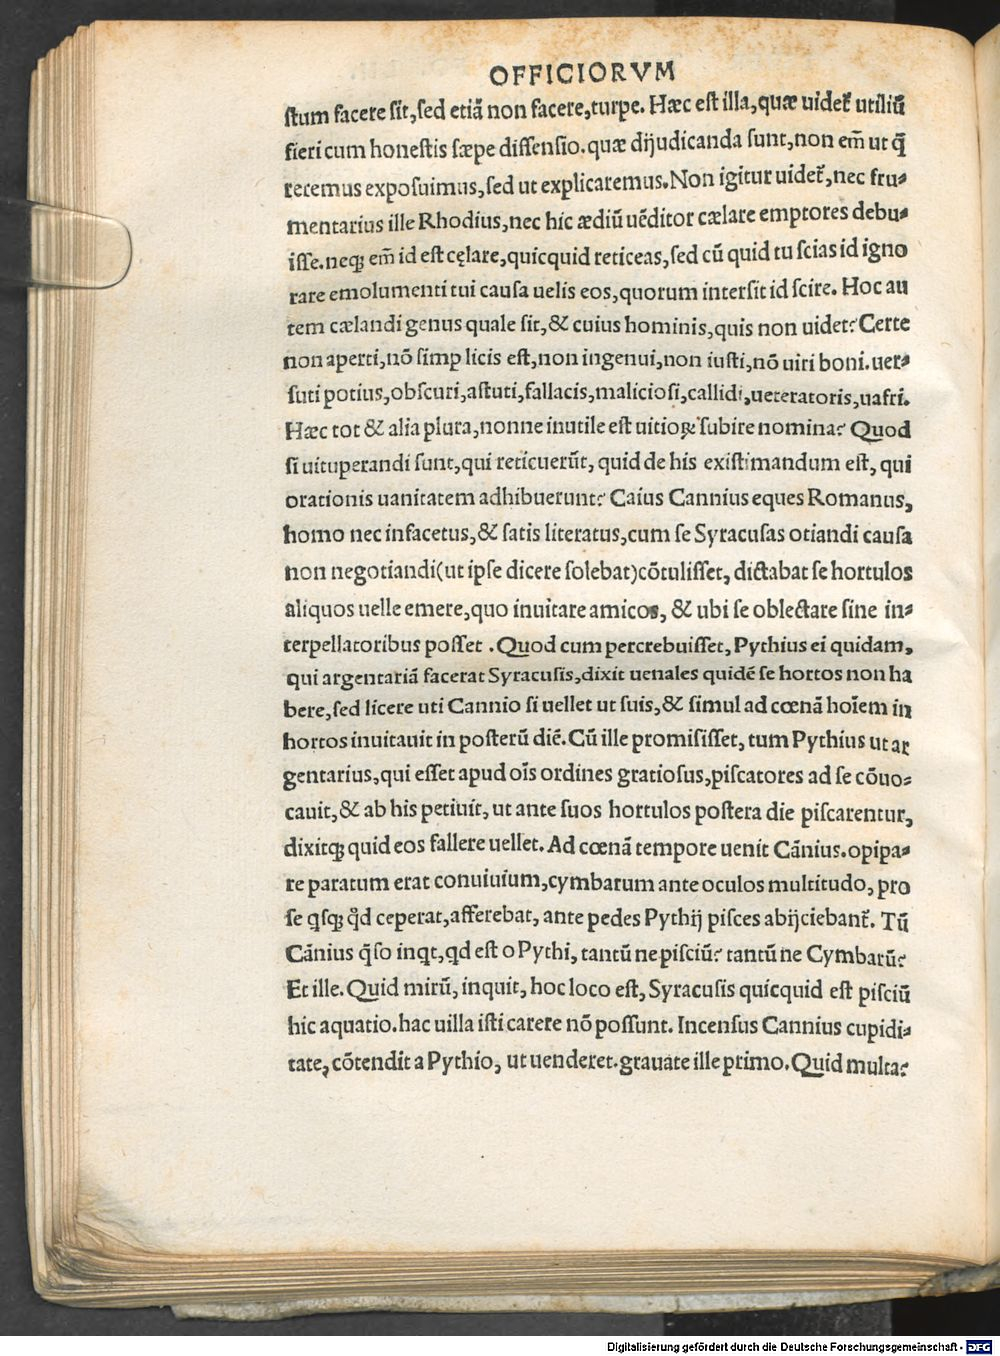 OFFICIORVM
ſtum facere ſit,ſed etiā non facere,turpe. Hæc eſt illa,quæ uidet᷑ utiliũ
fieri cum honeſtis ſæpe diſſenſio.quæ dijudicanda ſunt,non em̄ ut q̄
reremus expoſuimus,ſed ut explicaremus.Non igitur uidet᷑,nec fru-
mentarius ille Rhodius,nec hic ædiũ uēditor cælare emptores debu-
iſſe.neqꝫ em̄ id eſt cęlare,quicquid reticeas,ſed cũ quid tu ſcias id igno
rare emolumenti tui cauſa uelis eos,quorum interſit id ſcire. Hoc au
tem cælandi genus quale ſit,& cuius hominis,quis non uidet? Certe
non aperti,nō ſimp licis eſt,non ingenui,non iuſti,nō uiri boni.uer-
ſuti potius,obſcuri,aſtuti,fallacis,malicioſi,callidi,ueteratoris,uafri.
Hæc tot & alia plura,nonne inutile eſt uitioꝝ ſubire nomina? Quod
ſi uituperandi ſunt,qui reticuerūt, quid de his exiſtimandum eſt, qui
orationis uanitatem adhibuerunt? Caius Cannius eques Romanus,
homo nec infacetus,& ſatis literatus,cum ſe Syracuſas otiandi cauſa
non negotiandi(ut ipſe dicere ſolebat)cōtuliſſet, dictabat ſe hortulos
aliquos uelle emere,quo inuitare amicos, & ubi ſe oblectare ſine in-
terpellatoribus poſſet .Quod cum percrebuiſſet, Pythius ei quidam,
qui argentariā facerat Syracuſis,dixit uenales quidē ſe hortos non ha
bere,ſed licere uti Cannio ſi uellet ut ſuis,& ſimul ad cœnā hoīem in
hortos inuitauit in poſterũ diē.Cũ ille promiſiſſet, tum Pythius ut ar
gentarius,qui eſſet apud oīs ordines gratioſus,piſcatores ad ſe cōuo-
cauit,& ab his petiuit, ut ante ſuos hortulos poſtera die piſcarentur,
dixitqꝫ quid eos fallere uellet. Ad cœnā tempore uenit Cānius.opipa-
re paratum erat conuiuium,cymbarum ante oculos multitudo, pro
ſe qͥſqꝫ qd̓ ceperat,afferebat, ante pedes Pythij piſces abijciebant᷑. Tũ
Cānius q̄ſo inqͥt,qd est o Pythi, tantũ ne piſciũ? tantũ ne Cymbarũ?
Et ille. Quid mirũ, inquit, hoc loco eſt, Syracuſis quicquid eſt piſciũ
hic aquatio.hac uilla iſti carere nō poſſunt. Incenſus Cannius cupidi-
tate, cōtendit a Pythio, ut uenderet.grauate ille primo.Quid multa?
Digitalisierung gefördert durch die Deutsche Forschungsgemeinschaft - DFG